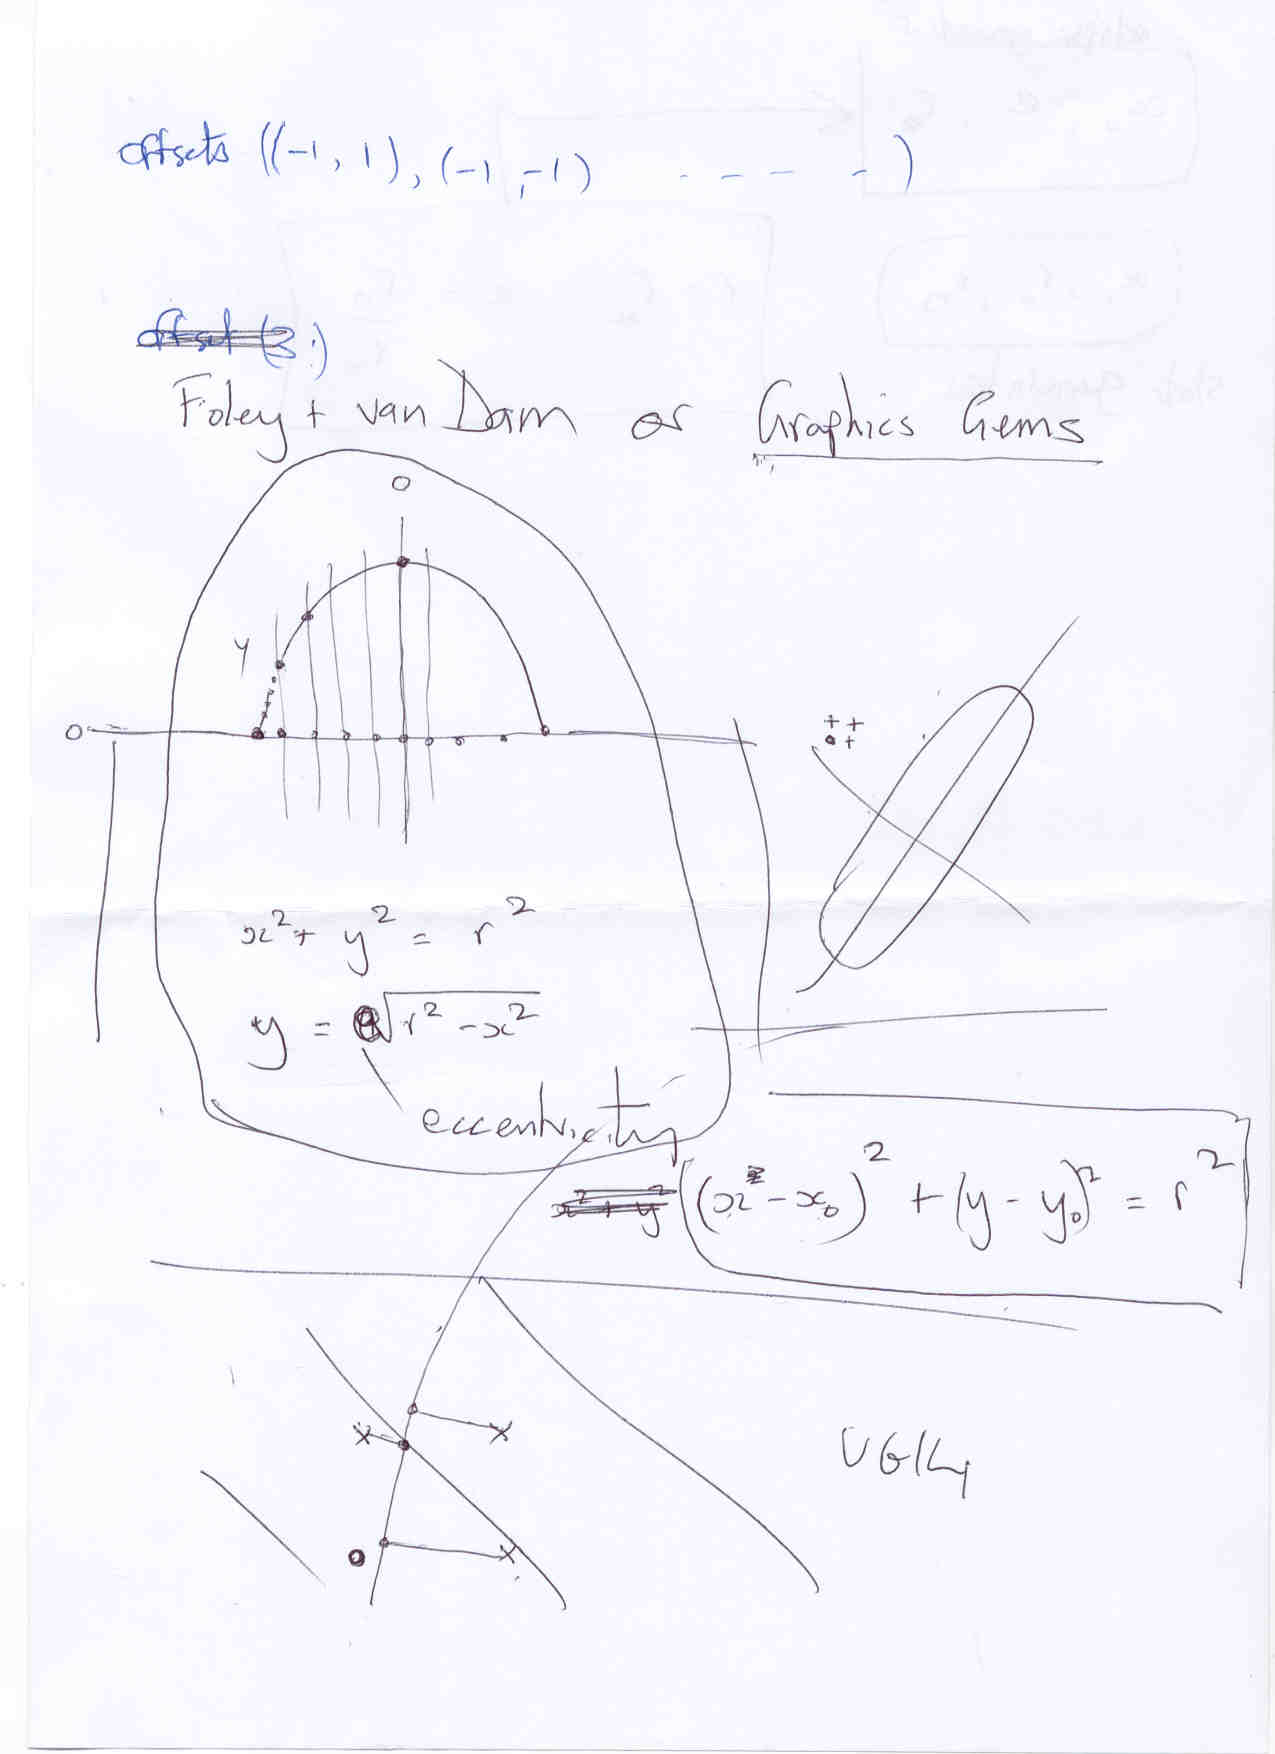 offsets ((-1, 1), (-1, -1) - - - - )
offset (3:)
Foley + van Dam or Graphics Gems
O
y
O
x² + y² = r²
y = e√r² - x²
eccentricity
x² + y² (x² - x₀)² + (y - y₀)² = r²
UGLY